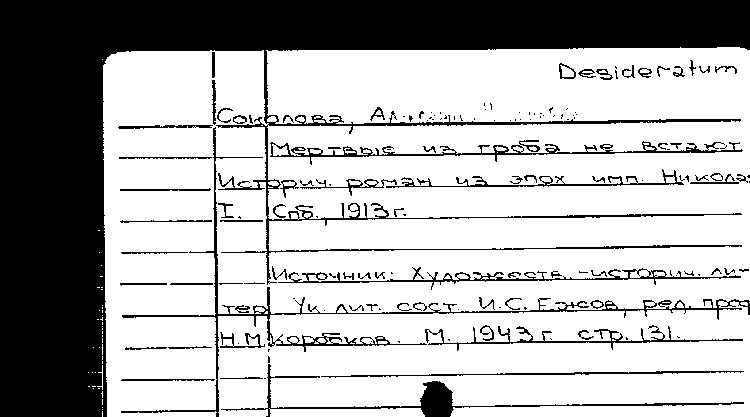 Desideratum
Соколова,
Мертвые из гроба не встают
Историч. роман из эпох имп. Никола
I. Спб., 1913 г.
Источник: Художеств.-историч. ли-
тер. Ук. лит. сост. И.С. Ежов, ред. проф
Н.М. Коробков. М., 1943 г. стр. 131.